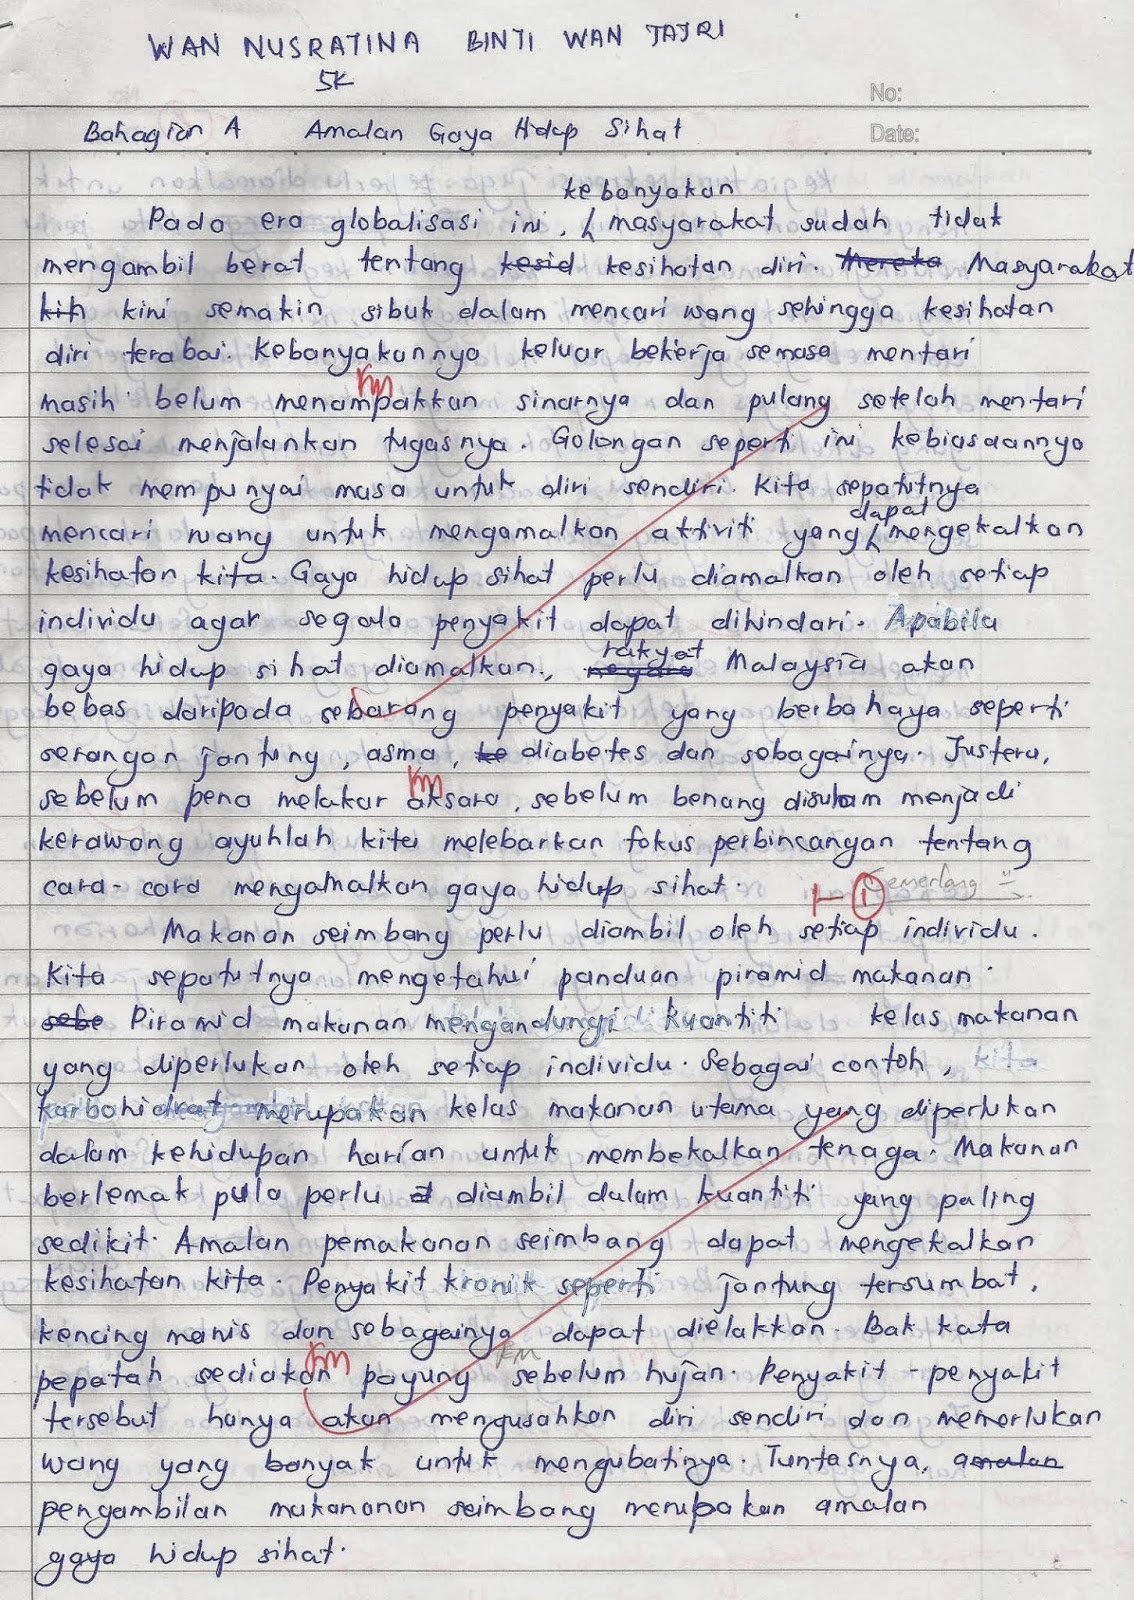 WAN NUSRATINA BINTI WAN TAJRI
5K
No:
Bahagian A Amalan Gaya Hidup Sihat Date:
kebanyakan
Pada era globalisasi ini, masyarakat sudah tidak
mengambil berat tentang kesid kesihatan diri. Mereka Masyarakat
kith kini semakin sibuk dalam mencari wang sehingga kesihatan
diri terabai. Kebanyakannya keluar bekerja semasa mentari
masih belum menampakkan sinarnya dan pulang setelah mentari
selesai menjalankan tugasnya. Golongan seperti ini kebiasaannya
tidak mempunyai masa untuk diri sendiri. Kita sepatutnya
dapat
mencari ruang untuk mengamalkan aktiviti yang mengekalkan
kesihatan kita. Gaya hidup sihat perlu diamalkan oleh setiap
individu agar segala penyakit dapat dihindari. Apabila
rakyat
gaya hidup sihat diamalkan, negara Malaysia akan
bebas daripada sebarang penyakit yang berbahaya seperti
serangan jantung, asma, ke diabetes dan sebagainya. Justeru,
sebelum pena melakar aksara, sebelum benang disulam menjadi
kerawang ayuhlah kita melebarkan fokus perbincangan tentang
cara-cara mengamalkan gaya hidup sihat.
1 Cemerlang
Makanan seimbang perlu diambil oleh setiap individu.
Kita sepatutnya mengetahui panduan piramid makanan.
sebe Piramid makanan mengandungi kuantiti kelas makanan
yang diperlukan oleh setiap individu. Sebagai contoh, kita
karbohidrat merupakan kelas makanan utama yang diperlukan
dalam kehidupan harian untuk membekalkan tenaga. Makanan
berlemak pula perlu d diambil dalam kuantiti yang paling
sedikit. Amalan pemakanan seimbang dapat mengekalkan
kesihatan kita. Penyakit kronik seperti jantung tersumbat,
kencing manis dan sebagainya dapat dielakkan. Bak kata
pepatah sediakan payung sebelum hujan. Penyakit-penyakit
tersebut hanya akan mengusahkan diri sendiri dan memerlukan
wang yang banyak untuk mengubatinya. Tuntasnya, amalan
pengambilan makananan seimbang merupakan amalan
gaya hidup sihat.